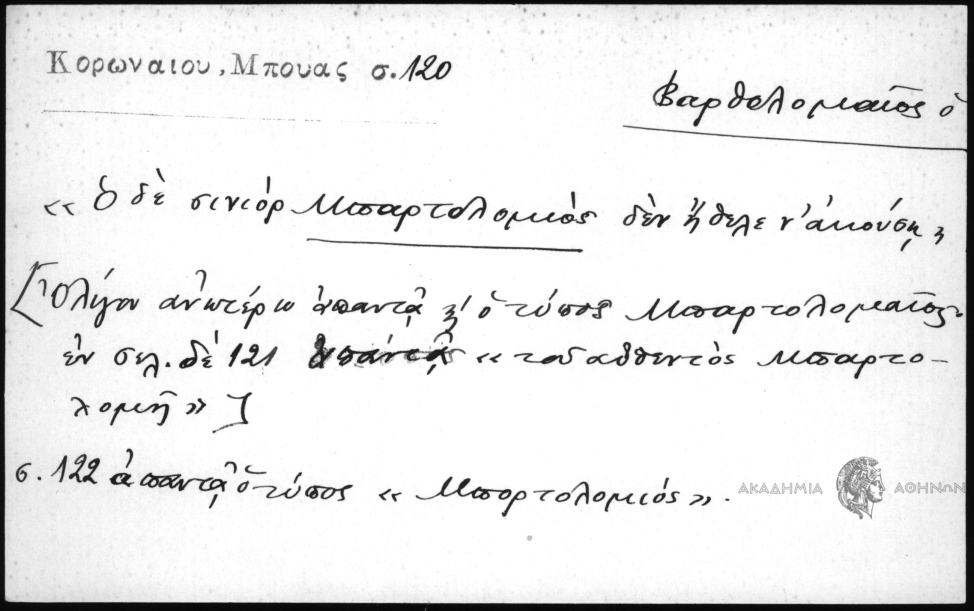 Κορωναιου, Μπουας σ. 120
Βαρθολομαῖος ὁ
« Ὁ δὲ σινιὸρ Μπαρτολομιὸς δὲν ἤθελε ν' ἀκούσῃ »
[Ὀλίγον ἀνωτέρω ἀπαντᾷ ὁ τύπος Μπαρτολομαῖος,
ἐν σελ. δὲ 121 ἀπαντᾷ « τοῦ αὐθεντὸς Μπαρτο-
λομιῆ » ]
σ. 122 ἀπαντᾷ ὁ τύπος « Μπορτολομιός ».
ΑΚΑΔΗΜΙΑ ΑΘΗΝΩΝ